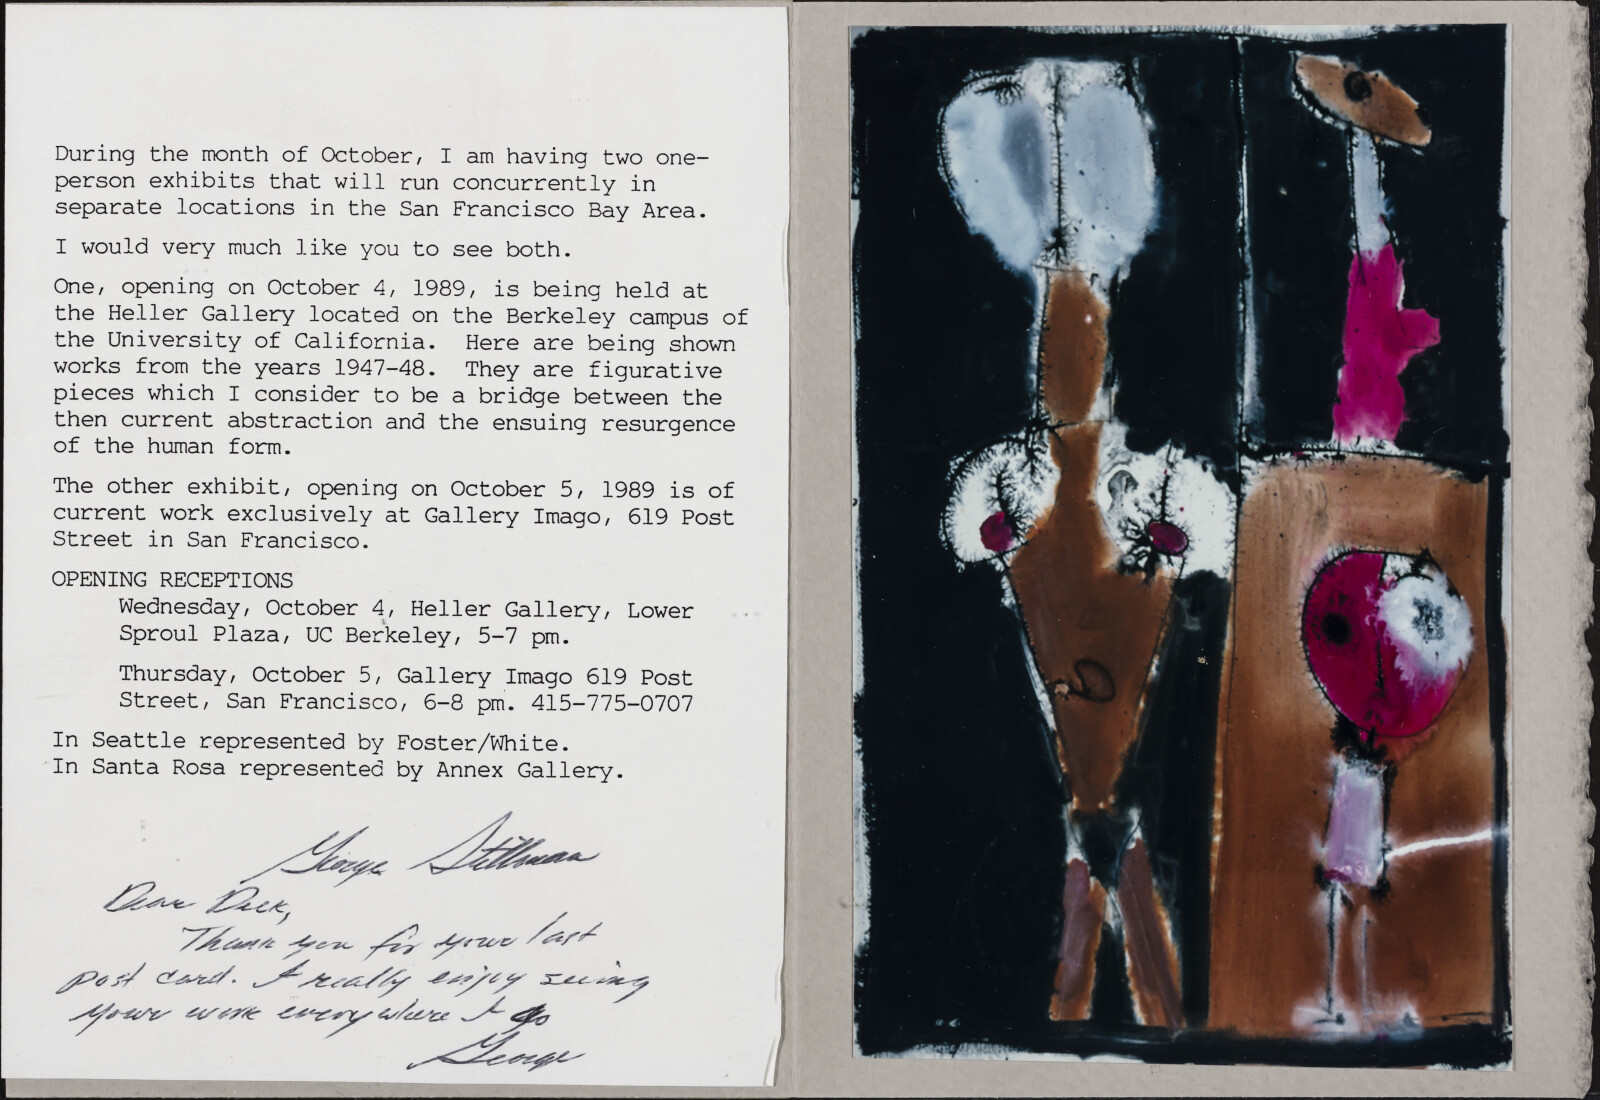 During the month of October, I am having two one-
person exhibits that will run concurrently in
separate locations in the San Francisco Bay Area.
I would very much like you to see both.
One, opening on October 4, 1989, is being held at
the Heller Gallery located on the Berkeley campus of
the University of California.  Here are being shown
works from the years 1947-48.  They are figurative
pieces which I consider to be a bridge between the
then current abstraction and the ensuing resurgence
of the human form.
The other exhibit, opening on October 5, 1989 is of
current work exclusively at Gallery Imago, 619 Post
Street in San Francisco.
OPENING RECEPTIONS
Wednesday, October 4, Heller Gallery, Lower
Sproul Plaza, UC Berkeley, 5-7 pm.
Thursday, October 5, Gallery Imago 619 Post
Street, San Francisco, 6-8 pm. 415-775-0707
In Seattle represented by Foster/White.
In Santa Rosa represented by Annex Gallery.
George Stillman
Dear Dick,
Thank you for your last
post card. I really enjoy seeing
your work everywhere I go
George